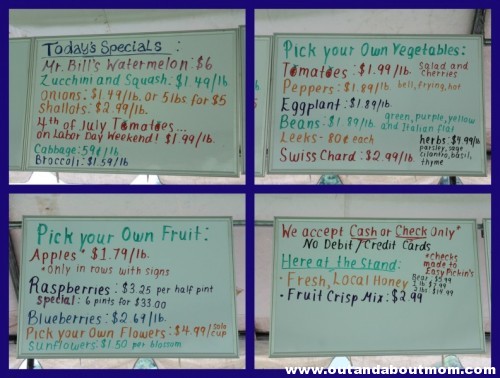 Today's Specials :
Mr. Bill's Watermelon: $6
Zucchini and Squash: $1.49/lb.
Onions: $1.49/lb. or 5lbs for $5
Shallots: $2.99/lb.
4th of July Tomatoes...
on Labor Day Weekend! $1.99/lb.
Cabbage: 59¢/lb
Broccoli: $1.59/lb
Pick your Own Vegetables:
Tomatoes : $1.99/lb. Salad and cherries
Peppers : $1.89/lb. bell, frying, hot
Eggplant : $1.89/lb.
Beans : $1.89/lb. green, purple, yellow and Italian flat
Leeks - 80¢ each
Swiss Chard : $2.99/lb.
herbs: $4.99/lb
parsley, sage
cilantro, basil,
thyme
Pick your Own Fruit:
Apples * $1.79/lb.
*Only in rows with signs
Raspberries : $3.25 per half pint
special: 6 pints for $33.00
Blueberries: $2.69/lb.
Pick your Own Flowers: $4.99/solo cup
Sunflowers: $1.50 per blossom
We accept Cash or Check Only*
No Debit/Credit Cards
*checks
made to
Easy Pickin's
Here at the Stand:
• Fresh, Local Honey
Bear $5.99
1 lb $7.99
2 lbs $14.99
• Fruit Crisp Mix: $2.99
www.outandaboutmom.com